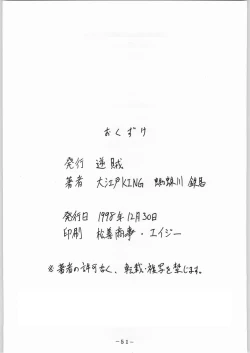 おくづけ
発行 逆賊
著者 大江戸KING 蜷川 銀馬
発行日 1998年12月30日
印刷 松善商事・エイジー
※著者の許可なく、転載・複写を禁じます。
-51-